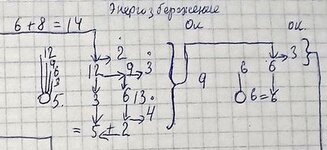 Энергозбереження
6+8=14
Ок ок.
2
12 12 9 3 3
9
6
3 6 6
5. 3 6 13. 9 6=6
4
= 5 ± 2